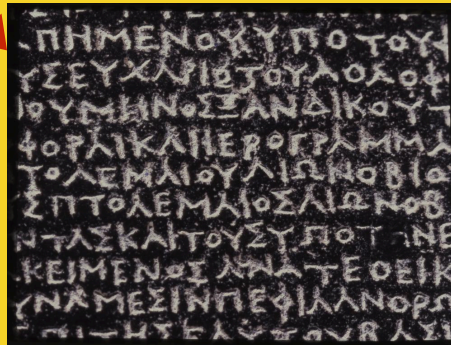 ΠΗΜΕΝΟΥΥΠΟΤΟΥΦ
ΥΣΕΥΧΑΡΙΣΤΟΥΑΘΛΟΦ
ΙΟΥΜΗΝΟΣΞΑΝΔΙΚΟΥΤ
ΦΟΡΑΙΚΑΙΙΕΡΟΓΡΑΜΜΑ
ΤΟΛΕΜΑΙΟΥΑΙΩΝΟΒΙΟ
ΣΠΤΟΛΕΜΑΙΟΣΑΙΩΝΟΒ
ΝΤΑΣΚΑΙΤΟΥΣΥΠΟΤ ΝΕ
ΚΕΙΜΕΝΟΣΑΝΑΤΕΘΕΙΚ
ΥΝΑΜΕΣΙΝΠΕΦΙΛΑΝΘΡΩ